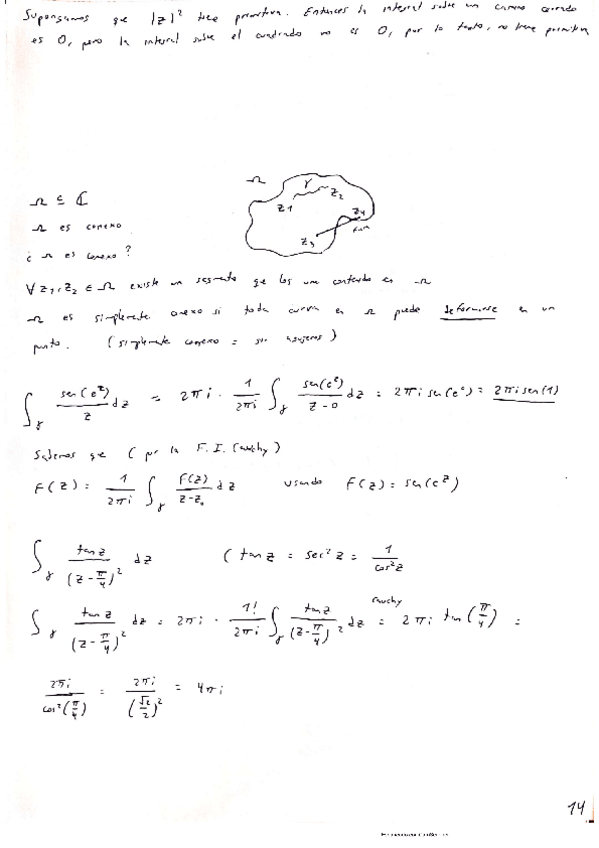 Supongamos que |z|² tiene primitiva. Entonces la integral sobre un camino cerrado
es 0, pero la integral sobre el cuadrado no es 0, por lo tanto, no tiene primitiva
Ω
γ
z1 z2
z3 z4
Ω ⊆ ℂ
Ω es conexo
¿ Ω es conexo?
∀ z1, z2 ∈ Ω existe un segmento que los une contenido en Ω
Ω es simplemente conexo si toda curva en Ω puede deformarse en un
punto. (simplemente conexo = sin agujeros)
∫γ sen(e^z)/z dz = 2πi · 1/2πi ∫γ sen(e^z)/(z-0) dz = 2πi sen(e^0) = 2πi sen(1)
Sabemos que (por la F.I. Cauchy)
F(z) = 1/2πi ∫γ F(z)/(z-z0) dz usando F(z) = sen(e^z)
∫γ tan z/(z-π/4)² dz (tan z = sec² z = 1/cos² z
∫γ tan z/(z-π/4)² dz = 2πi · 1!/2πi ∫γ tan z/(z-π/4)² dz = Cauchy 2πi tan(π/4) =
2πi/cos²(π/4) = 2πi/(√2/2)² = 4πi
14